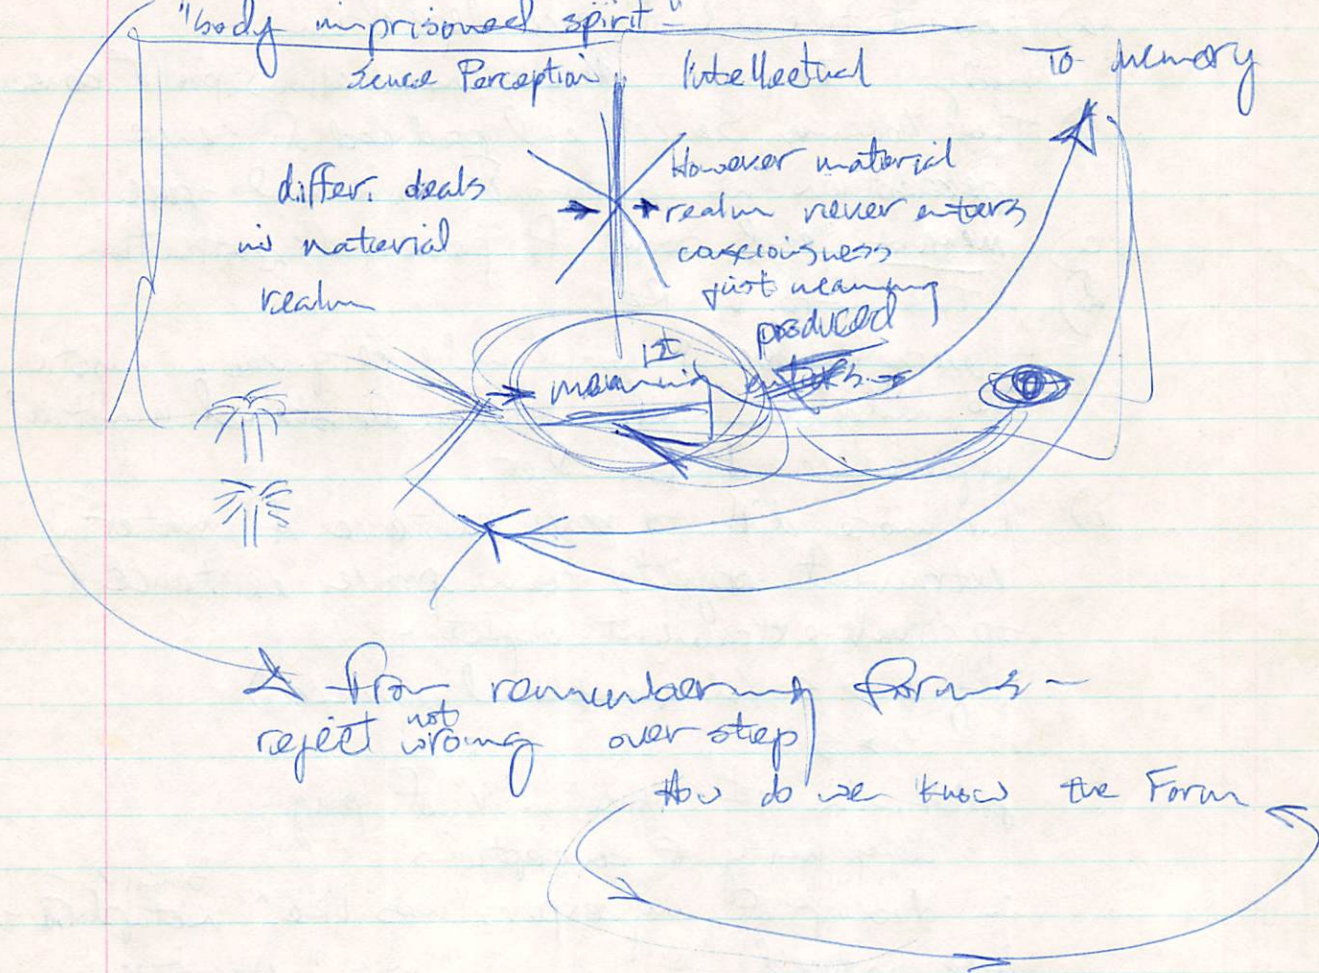 "body imprisoned spirit"
Sense Perception Intellectual
To memory
differ. deals
material
realm
However material
realm never enters
consciousness
just meaning
produced
meaning
from remembering forms -
reject not wrong over step
How do we know the Form